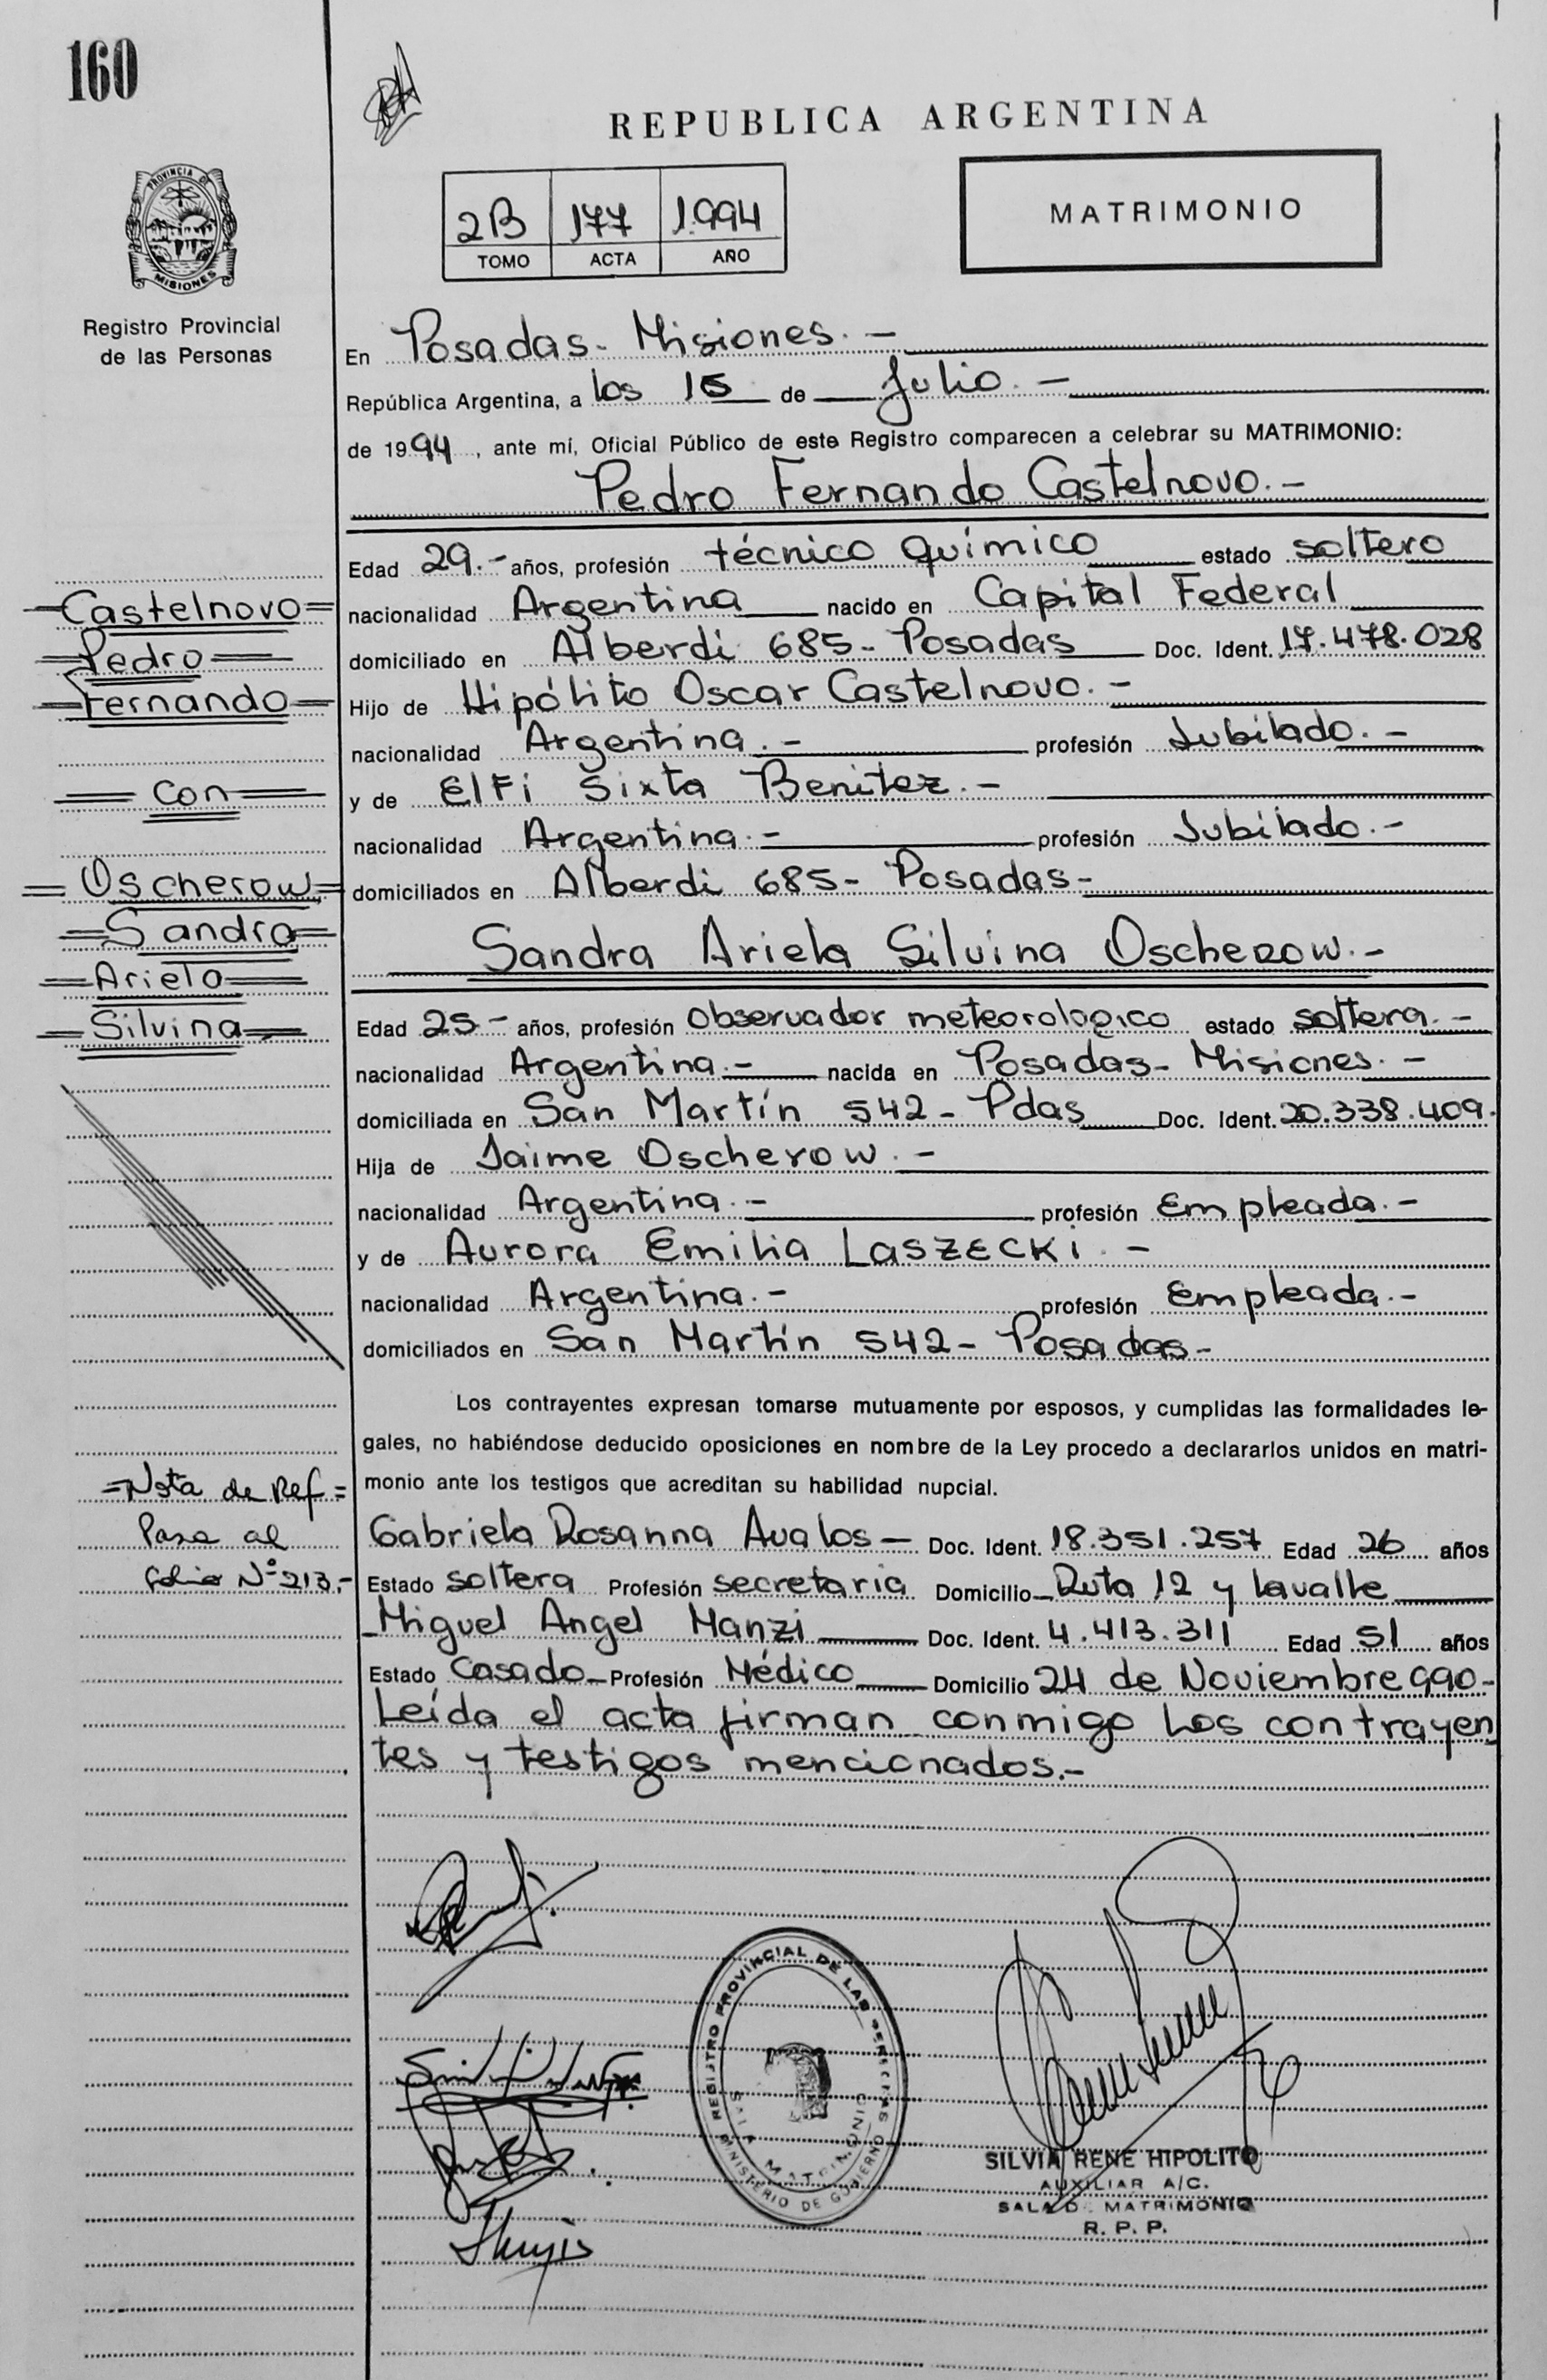 160
REPUBLICA ARGENTINA
PROVINCIA DE
MISIONES
Registro Provincial
de las Personas
2B 177 1.994
TOMO ACTA AÑO
MATRIMONIO
En Posadas - Misiones. -
República Argentina, a los 15 de Julio. -
de 1994, ante mí, Oficial Público de este Registro comparecen a celebrar su MATRIMONIO:
Pedro Fernando Castelnovo. -
Edad 29.- años, profesión técnico químico estado soltero
nacionalidad Argentina nacido en Capital Federal
domiciliado en Alberdi 685 - Posadas Doc. Ident. 17.478.028
Hijo de Hipólito Oscar Castelnovo. -
nacionalidad Argentina. - profesión Jubilado. -
y de Elfi Sixta Benítez. -
nacionalidad Argentina. - profesión Jubilado. -
domiciliados en Alberdi 685 - Posadas -
Sandra Ariela Silvina Oscherow. -
Edad 25 - años, profesión Observador meteorologico estado soltera. -
nacionalidad Argentina. - nacida en Posadas - Misiones. -
domiciliada en San Martín 542 - Pdas Doc. Ident. 20.338.409.
Hija de Jaime Oscherow. -
nacionalidad Argentina. - profesión Empleada. -
y de Aurora Emilia Laszecki. -
nacionalidad Argentina. - profesión Empleada. -
domiciliados en San Martín 542 - Posadas -
Los contrayentes expresan tomarse mutuamente por esposos, y cumplidas las formalidades le-
gales, no habiéndose deducido oposiciones en nombre de la Ley procedo a declararlos unidos en matri-
monio ante los testigos que acreditan su habilidad nupcial.
Gabriela Rosanna Avalos - Doc. Ident. 18.351.257 Edad 26 años
Estado soltera Profesión secretaria Domicilio Ruta 12 y Lavalle
Miguel Angel Manzi Doc. Ident. 4.413.311 Edad 51 años
Estado Casado - Profesión Médico Domicilio 24 de Noviembre 990 -
Leída el acta firman conmigo los contrayen
tes y testigos mencionados. -
=Castelnovo=
=Pedro=
=Fernando=
=Con=
=Oscherow=
=Sandra=
=Ariela=
=Silvina=
=Nota de Ref=
Pasa al
folio Nº 213.-
REGISTRO PROVINCIAL DE LAS PERSONAS
SALA MATRIMONIO
MINISTERIO DE GOBIERNO
SILVIA RENE HIPOLITO
AUXILIAR A/C.
SALA D. MATRIMONIO
R. P. P.